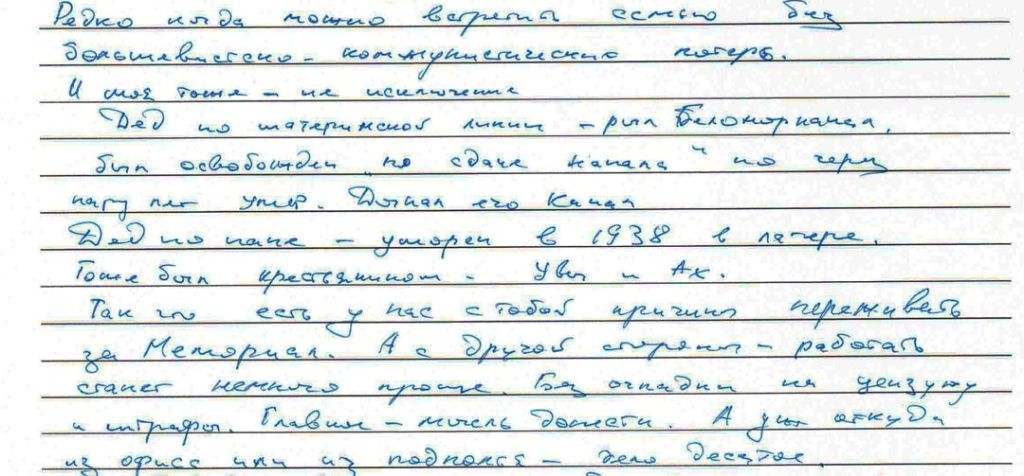 Редко когда можно встретить семью без
большевистско-коммунистических потерь.
И моя тоже – не исключение
Дед по материнской линии – рыл Беломорканал,
был освобожден „по сдаче канала“ но через
пару лет умер. Догнал его Канал
Дед по папе – уморен в 1938 в лагере.
Тоже был крестьянином – Увы и Ах.
Так что есть у нас с тобой причины переживать
за Мемориал. А с другой стороны – работать
станет немного проще. Без оглядки на цензуру
и штрафы. Главное – мысль донести. А уж откуда
из офиса или из подполья – дело десятое.